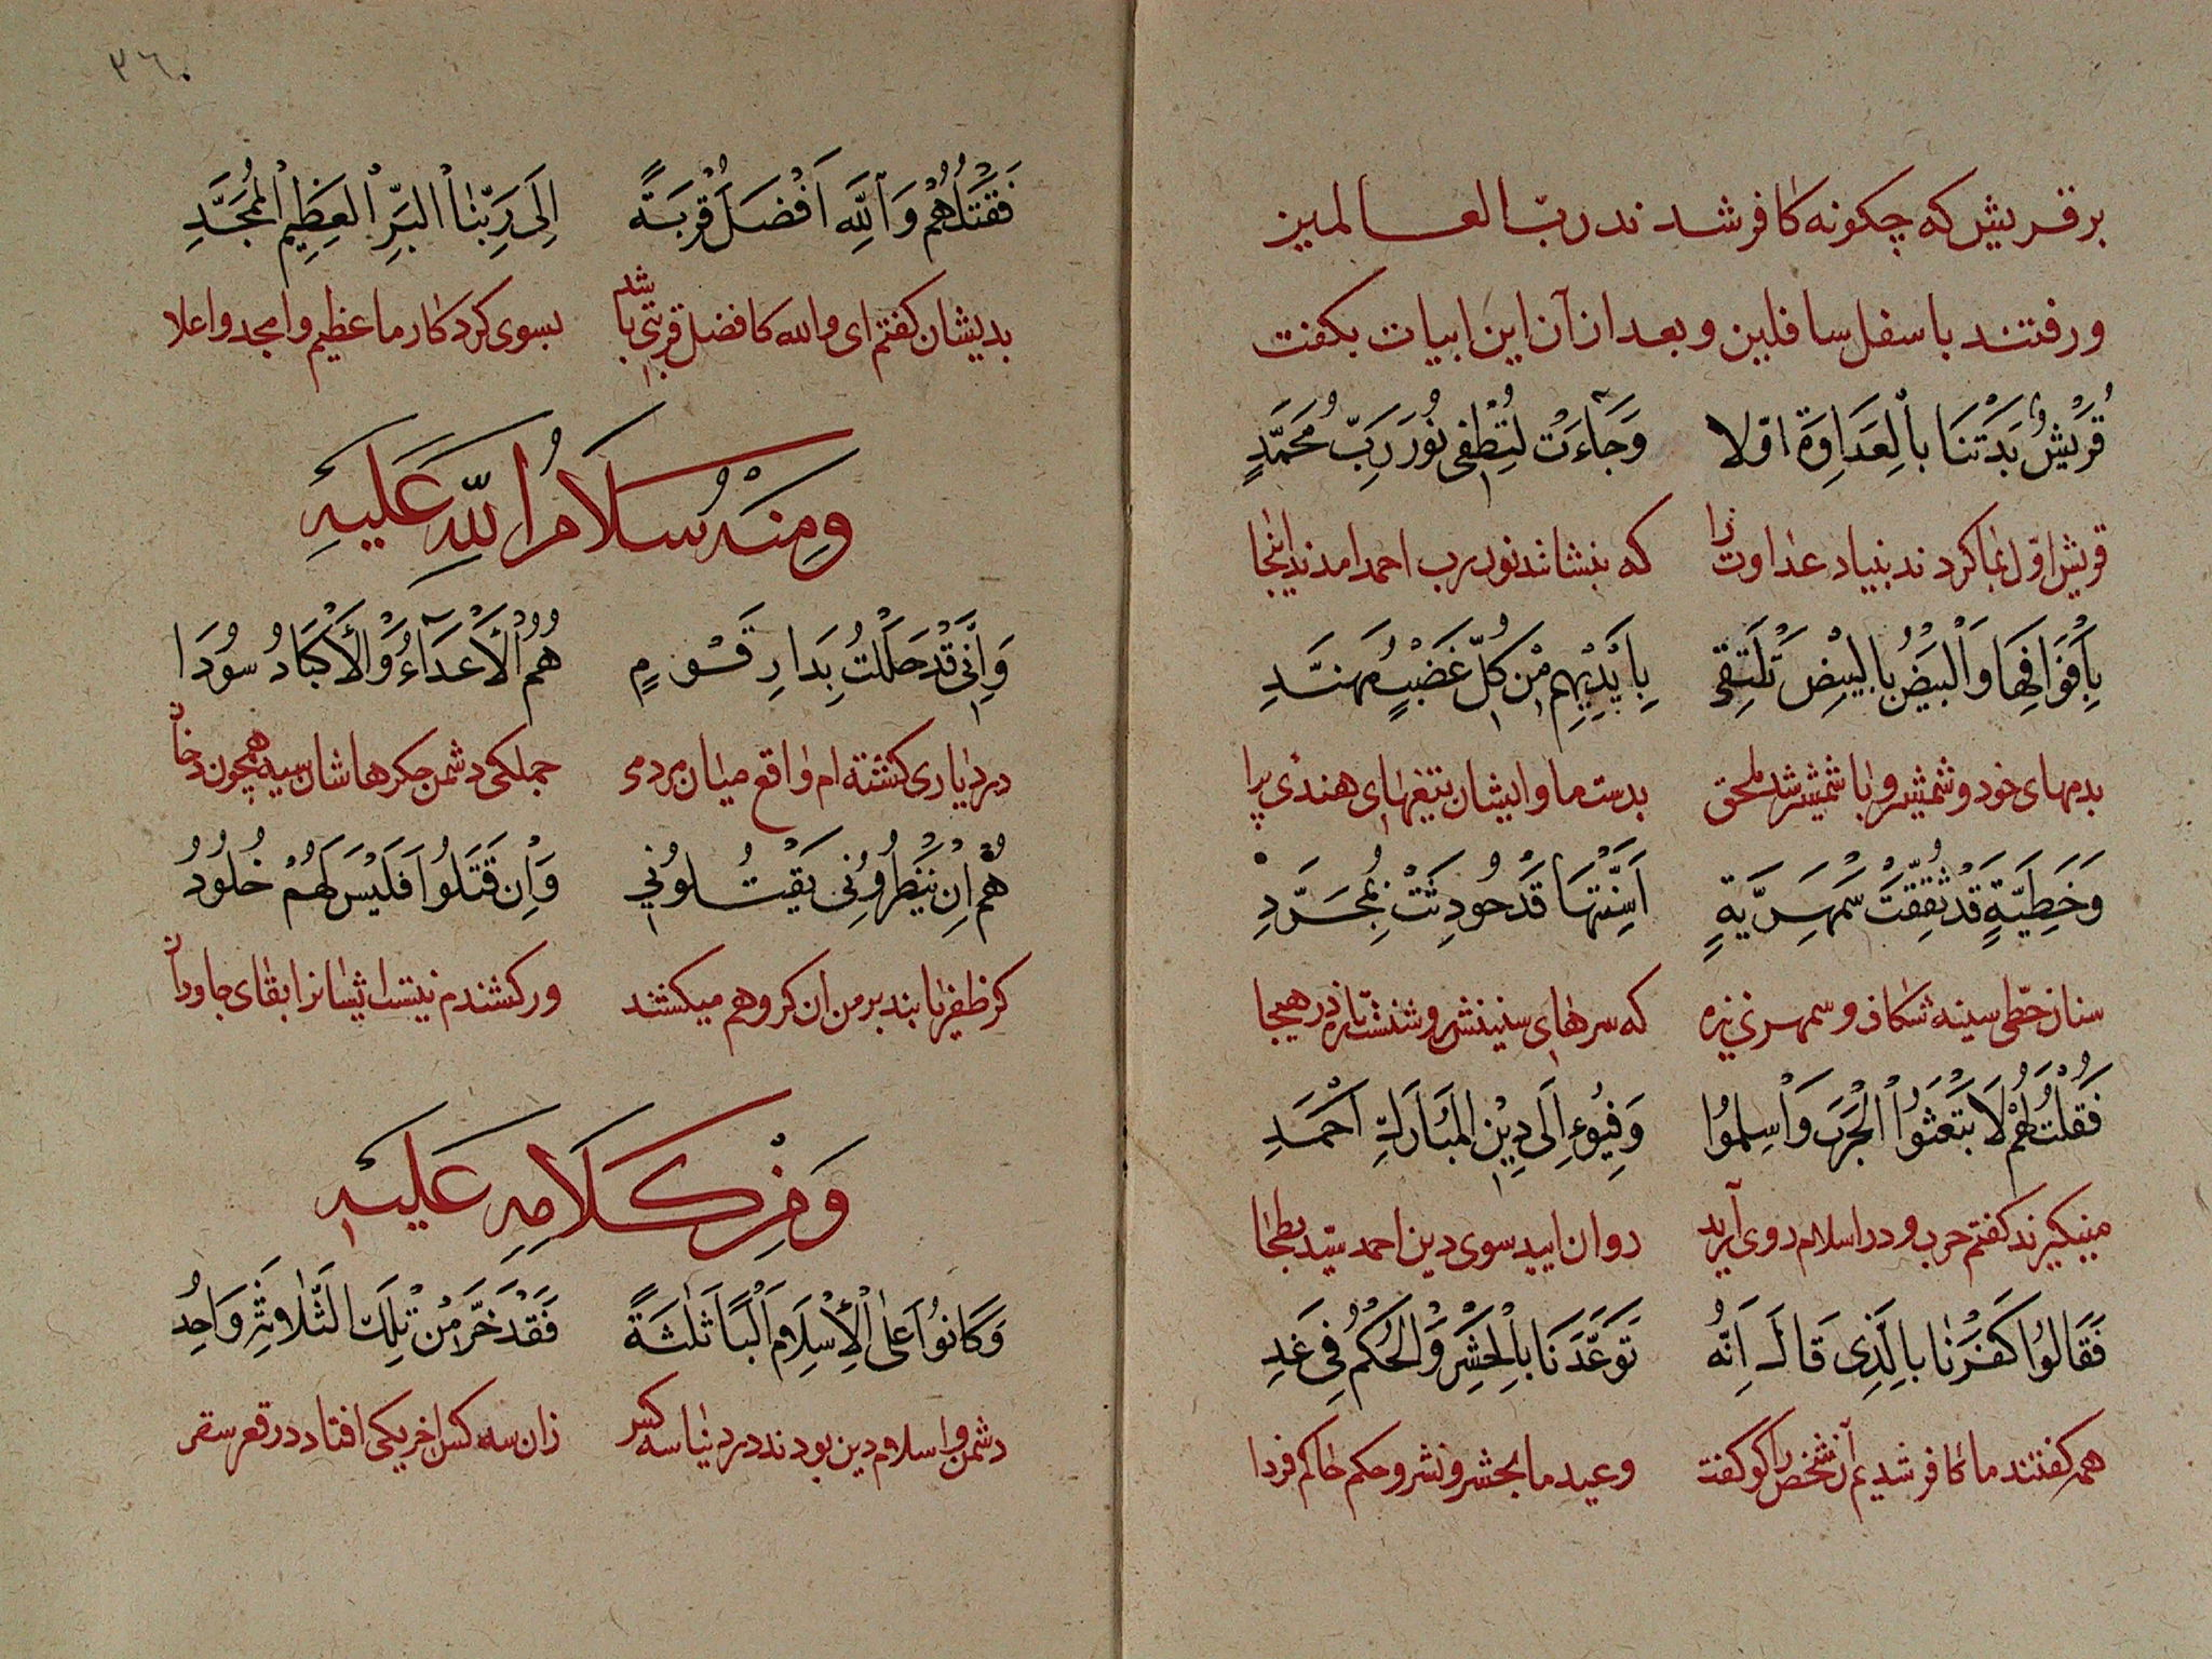 بر قریش که چکونه کافر شد ند رب العالمین
و رفتند باسفل سافلین و بعد ازان این ابیات بکفت
قُرَیْشٌ بَدَتْنَا بِالعَدَاوَةِ اوّلا وَجَآءَتْ لِتُطْفِی نُورَ رَبِّ مُحَمَّدٍ
قریش اوّل بما کرد ند بنیاد عداوت را که بنشانند نور رب احمد امدند اینجا
بِاَفْوَاهِهَا وَالْبِیْضُ بِالبِیْضِ تَلْتَقِی بِاَیْدِیْهِم مِنْ کُلِّ غَضْبٍ مُهَنَّدِ
بدمهای خود و شمشیر و با شمشیر شد ملحق بدست ما و ایشان تیغهای هندی برا
وَخَطِیَّةٍ قَدْ ثُقِّفَتْ سَمْهَرِیَّةٍ اَسِنَّتُهَا قَدْ حُودِثَتْ بِمُجَرَّدِ
سنان خطی سینه شکاف و سمهری نیزه که سرهای سنینش روشنش تازه در هیجا
فَقُلْتُ لَهُمْ لَا تَبْعَثُوا الْحَرْبَ وَاسْلِمُوا وَفِیُوءِ اِلَی دِیْنِ المُبَارَكِ اَحْمَدِ
مینکیزند کفتم حرب و در اسلام روی آرید روان ایید سوی دین احمد سید بطحا
فَقَالُوا کَفَرْنَا بِالَّذِی قَالَ اِنَّهُ تَوَعَّدَنَا بِالْحَشْرِ وَالْحُکْمُ فِی غَدِ
همه کفتند ما کافر شدیم آنشخص را کو کفت وعید ما بحشر و نشر و حکم حاکم فردا
٣٦٠
فَقَتْلُهُمْ وَاللّٰهِ اَفْضَلُ قُرْبَةً اِلَی رَبِّنَا الْبَرِّ الْعَظِیْمِ الْمُمَجَّدِ
بدیشان کفتم ای والله کا فضل قربتی باشد بسوی کرد کار ما عظیم و امجد و اعلا
وَمِنْهُ سَلَامُ اللّٰهِ عَلَیْهِ
وَاِنِّی قَدْ حَلَلْتُ بِدَارِ قَوْمٍ هُمُ الْاَعْدَآءُ وَالْاَکْبَادُ سُودَا
در دیاری کشته ام واقع میان مردمی جملکی دشمن جکرهاشان سیه همچون دخان
هُمُ اِنْ یَظْفَرُونِی یَقْتُلُونِی وَاِنْ قَتَلُوا فَلَیْسَ لَهُمْ خُلُودُ
کر ظفر یابند بر من ان کروهم میکشند ور کشندم نیست ایشانرا بقای جاودان
وَمِنْ کَلَامِهِ عَلَیْهِ
وَکَانُوا عَلَی الْاِسْلَامِ اَلْبًا ثَلٰثَةً فَقَدْ خَرَّ مِنْ تِلْكَ الثَّلَاثَةِ وَاحِدُ
دشمن اسلام و دین بودند در دنیا سه کس زان سه کس اخر یکی افتاد در قعر سقر